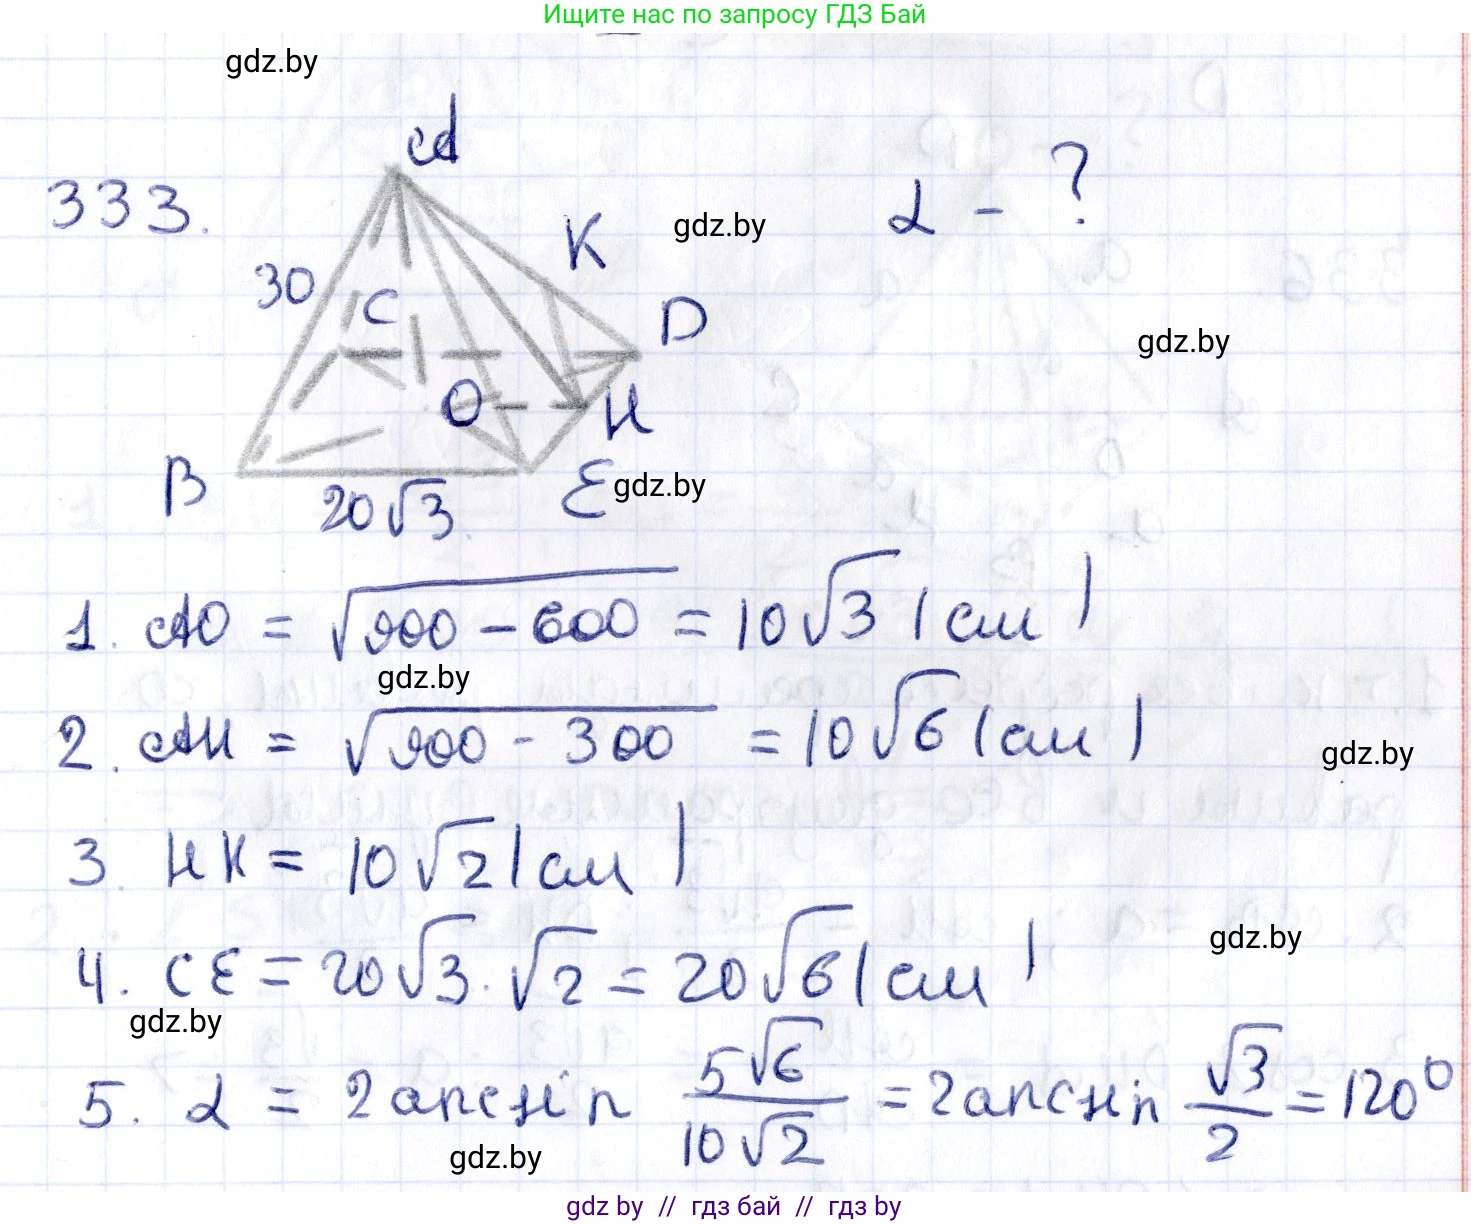 Ищите нас по запросу ГДЗ Бай
gdz.by
A
333.
K
gdz.by
α - ?
30
C
D
gdz.by
O
H
B
E
gdz.by
20√3
1. AO = √900 - 600 = 10√3 (см)
gdz.by
2. AH = √900 - 300 = 10√6 (см)
gdz.by
3. HK = 10√2 (см)
4. CE = 20√3 · √2 = 20√6 (см)
gdz.by
gdz.by
5. α = 2 arcsin 5√6/10√2 = 2 arcsin √3/2 = 120°
gdz.by
gdz by // гдз бай // гдз by